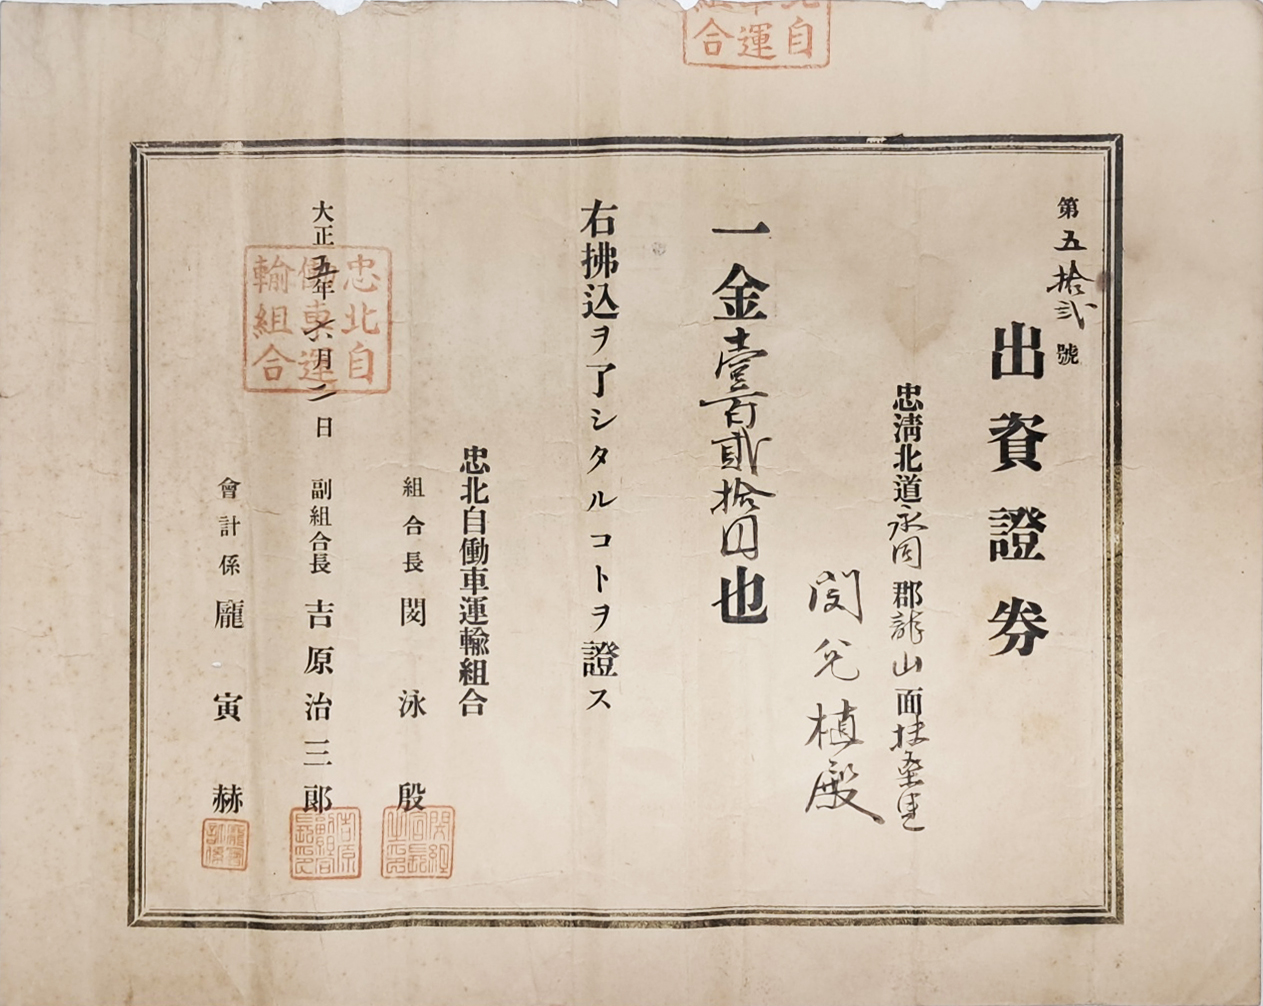 第五拾弐號
出資證券
忠淸北道永同郡龍山面
閔 植殿
一金壹百貳拾円也
右拂込ヲ了シタルコトヲ證ス
忠北自働車運輸組合
組合長 閔泳殷
大正五年六月二日
副組合長 吉原治三郎
會計係 龐寅赫
忠北自
働車運
輸組合
自運合